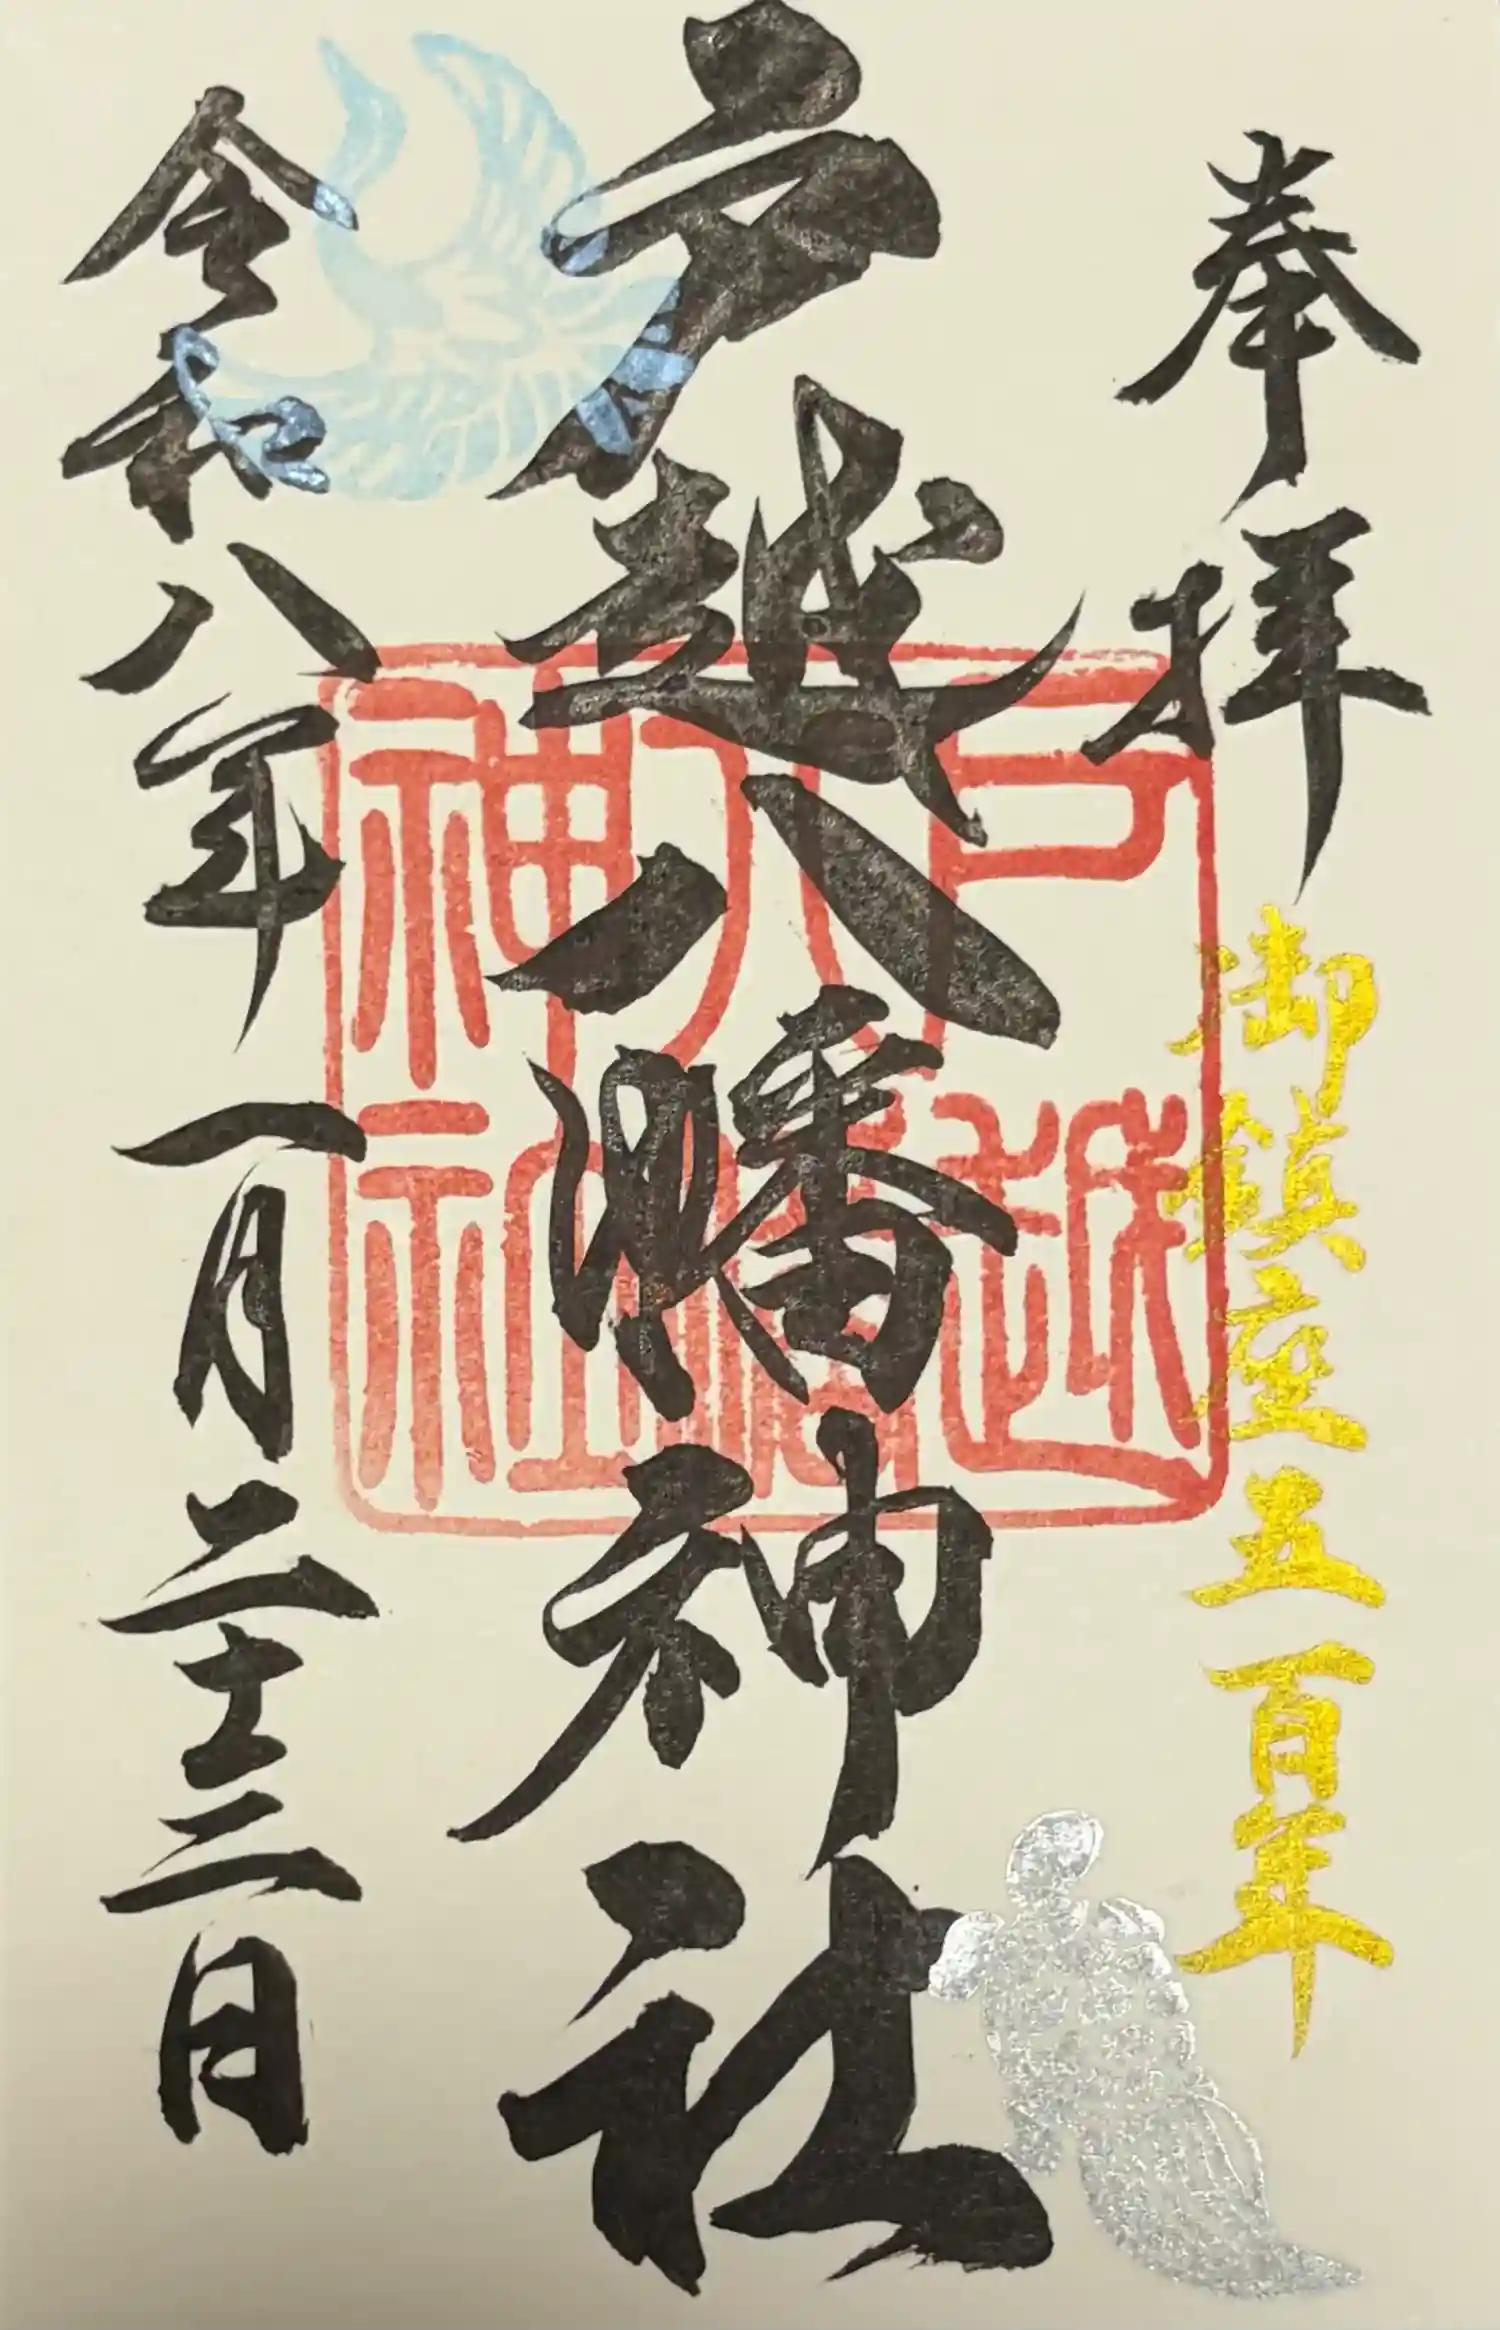 奉拝
御鎮座五百年
戸越八幡神社
戸越
八幡
神社
令和八年一月二十三日